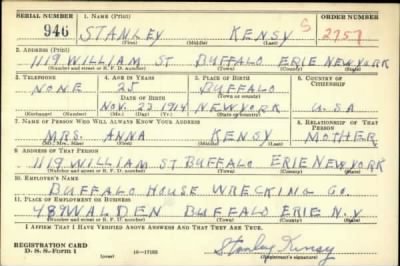 SERIAL NUMBER 1. NAME (Print) ORDER NUMBER
946 STANLEY KENSY S 2757
(First) (Middle) (Last)
2. ADDRESS (Print)
1119 WILLIAM ST BUFFALO ERIE NEW YORK
(Number and street or R. F. D. number) (Town) (County) (State)
3. TELEPHONE 4. AGE IN YEARS 5. PLACE OF BIRTH 6. COUNTRY OF CITIZENSHIP
NONE 25 BUFFALO
DATE OF BIRTH (Town or county)
NOV. 23 1914 NEW YORK U.S.A
(Exchange) (Number) (Mo.) (Day) (Yr.) (State or country)
7. NAME OF PERSON WHO WILL ALWAYS KNOW YOUR ADDRESS 8. RELATIONSHIP OF THAT PERSON
MRS. ANNA KENSY MOTHER
(Mr., Mrs., Miss) (First) (Middle) (Last)
9. ADDRESS OF THAT PERSON
1119 WILLIAM ST BUFFALO ERIE NEW YORK
(Number and street or R. F. D. number) (Town) (County) (State)
10. EMPLOYER'S NAME
BUFFALO HOUSE WRECKING CO.
11. PLACE OF EMPLOYMENT OR BUSINESS
489 WALDEN BUFFALO ERIE N.Y
(Number and street or R. F. D. number) (Town) (County) (State)
I AFFIRM THAT I HAVE VERIFIED ABOVE ANSWERS AND THAT THEY ARE TRUE.
REGISTRATION CARD
D. S. S. Form 1 (over) 16—17105 Stanley Kensy
(Registrant's signature)